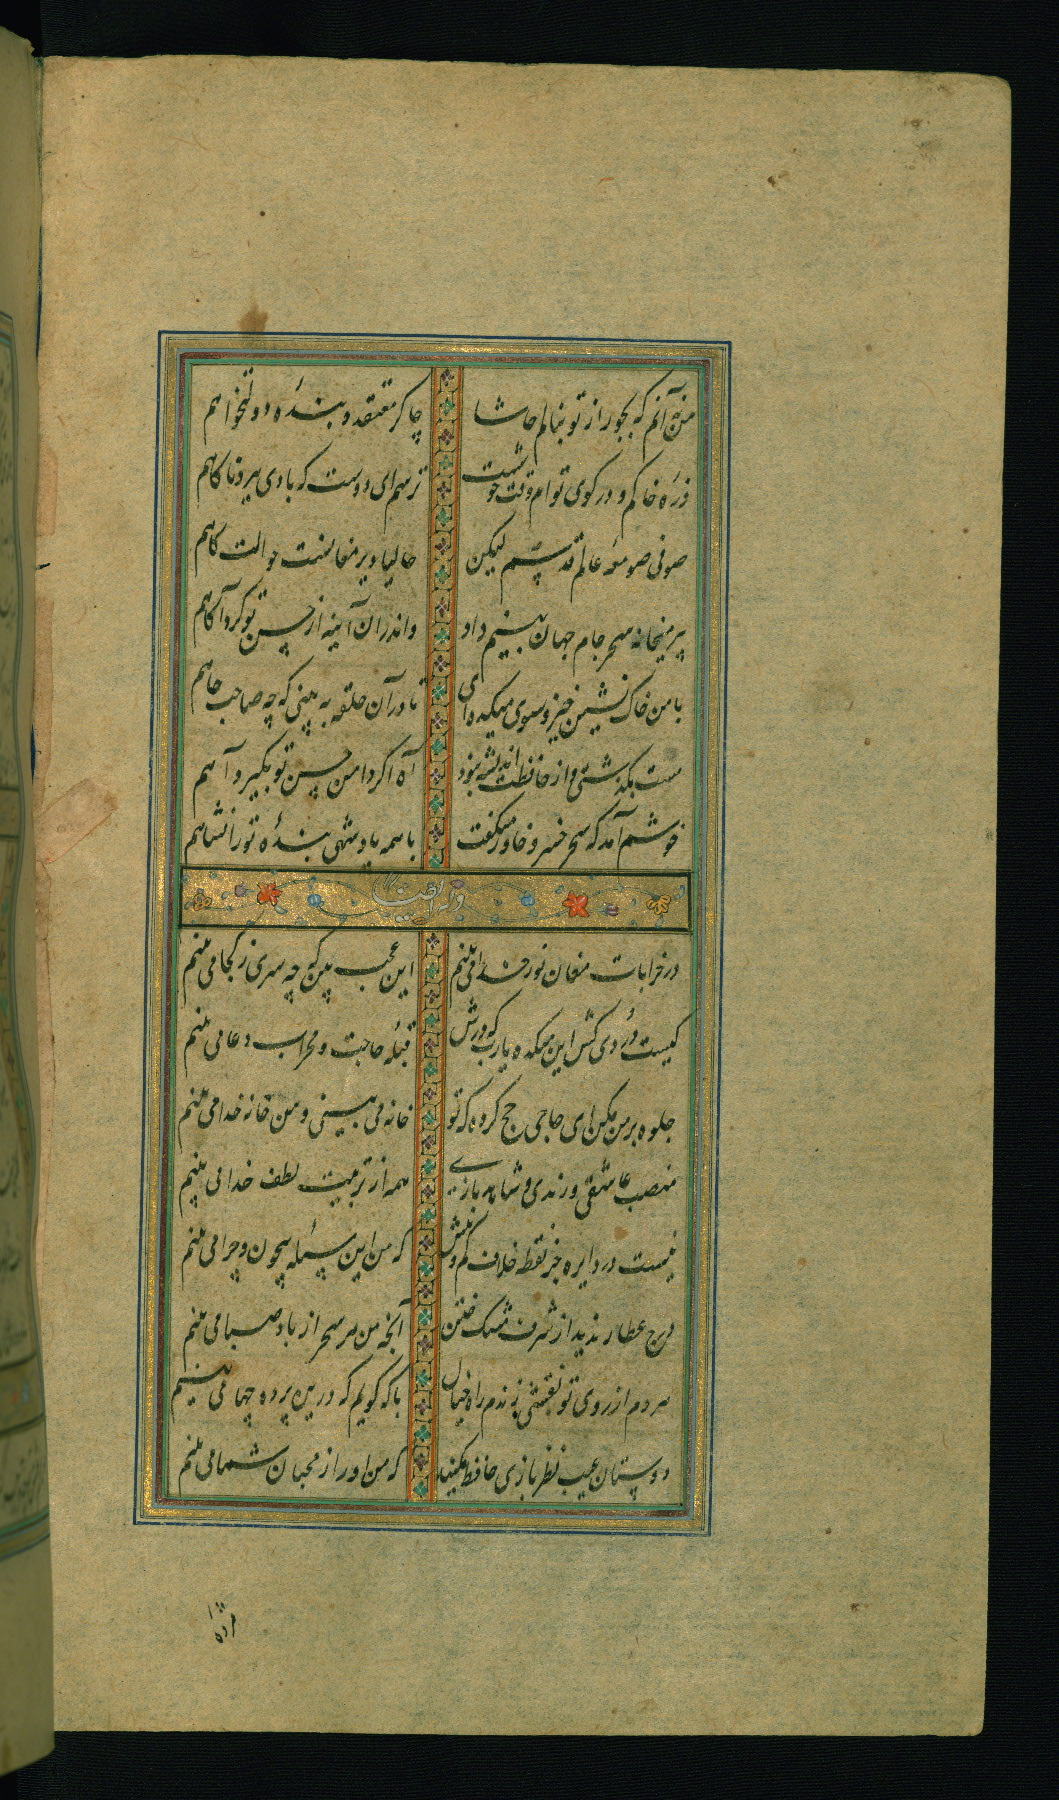 من نه آنم که بجور از تو بنالم حاشا چاکر معتقد و بندۀ دولتخواهم
ذره خاکم و در کوی توام وقت خوشست ترسم ای دوست که بادی ببرد ناگاهم
صوفی صومعۀ عالم قدسم لیکن حالیا دیر مغانست حوالت گاهم
پیر میخانه سحر جام جهان بینم داد واندران آینه از حسن تو کرد آگاهم
با من خاک نشین خیز و سوی میکده آی تا در آن حلقه به بینی که چه صاحب جاهم
مست بگذشتی و از حافظت اندیشه نبود آه اگر دامن حسن تو بگیرد آهم
خوشم آمد که سحر خسرو خاور میگفت با همه پادشهی بندۀ تورانشاهم
وله ایضا
در خرابات مغان نور خدا می بینم این عجب بین که چه نوری ز کجا می بینم
کیست دردی کش این میکده یارب که درش قبلۀ حاجت و محراب دعا می بینم
جلوه بر من مکن ای حاجی حج کرده که تو خانه می بینی و من خانه خدا می بینم
منصب عاشقی و رندی و شاهد بازی همه از تربیت لطف خدا می بینم
نیست در دایره جز نقطه خلاف کم و بیش که من این مسئله بیچون و چرا می بینم
درج عطار ندید از شرف مشک ختن آنچه من هر سحر از باد صبا می بینم
هر دم از روی تو نقشی زندم راه خیال با که گویم که درین پرده چها می بینم
دوستان عیب نظربازی حافظ مکنید که من او را از محبان شما می بینم